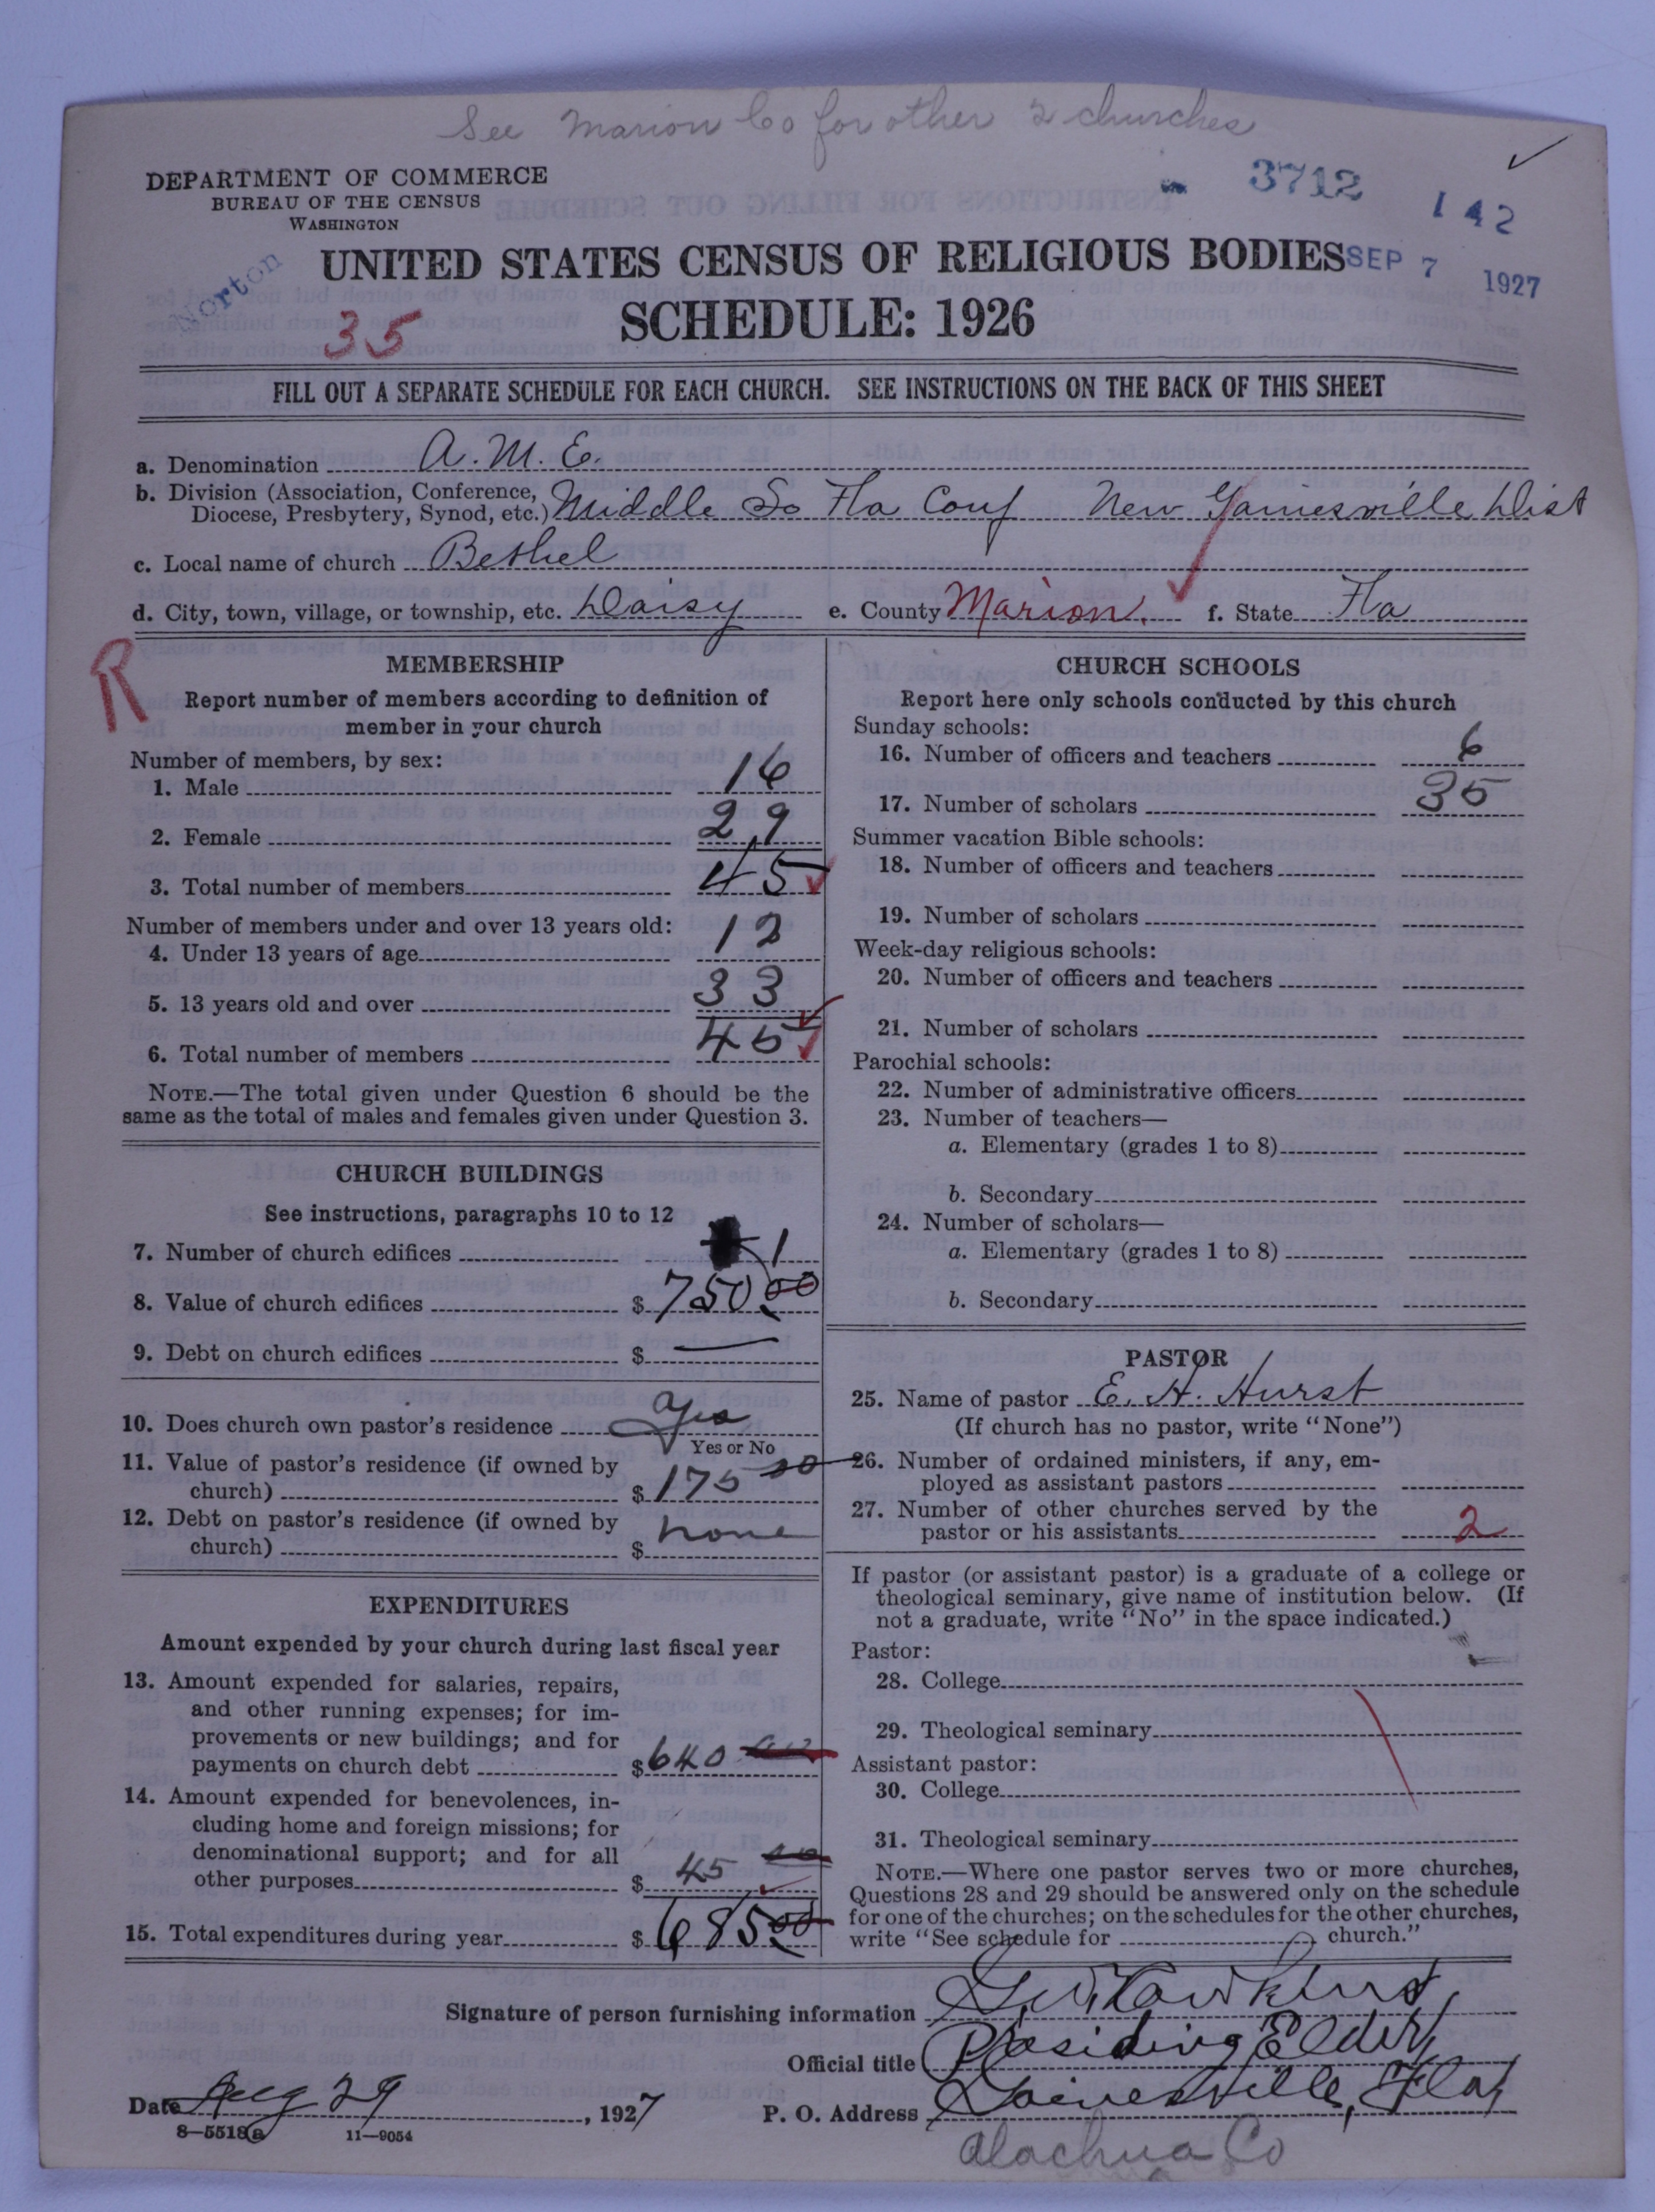 See Marion Co for other 2 churches
DEPARTMENT OF COMMERCE
BUREAU OF THE CENSUS
WASHINGTON
3712
142
Norton
UNITED STATES CENSUS OF RELIGIOUS BODIES
SEP 7 1927
35
SCHEDULE: 1926
FILL OUT A SEPARATE SCHEDULE FOR EACH CHURCH. SEE INSTRUCTIONS ON THE BACK OF THIS SHEET
a. Denomination A. M. E.
b. Division (Association, Conference,
Diocese, Presbytery, Synod, etc.) Middle So Fla Conf New Gainesville Dist
c. Local name of church Bethel
d. City, town, village, or township, etc. Daisy e. County Marion. f. State Fla
R
MEMBERSHIP
Report number of members according to definition of
member in your church
Number of members, by sex:
1. Male 16
2. Female 29
3. Total number of members 45
Number of members under and over 13 years old:
4. Under 13 years of age 12
5. 13 years old and over 33
6. Total number of members 45
NOTE.—The total given under Question 6 should be the
same as the total of males and females given under Question 3.
CHURCH BUILDINGS
See instructions, paragraphs 10 to 12
7. Number of church edifices 1
8. Value of church edifices $ 750 00
9. Debt on church edifices $ —
10. Does church own pastor's residence yes
Yes or No
11. Value of pastor's residence (if owned by
church) $ 175 00
12. Debt on pastor's residence (if owned by
church) $ none
EXPENDITURES
Amount expended by your church during last fiscal year
13. Amount expended for salaries, repairs,
and other running expenses; for im-
provements or new buildings; and for
payments on church debt $ 640 00
14. Amount expended for benevolences, in-
cluding home and foreign missions; for
denominational support; and for all
other purposes $ 45 00
15. Total expenditures during year $ 685 00
CHURCH SCHOOLS
Report here only schools conducted by this church
Sunday schools:
16. Number of officers and teachers 6
17. Number of scholars 35
Summer vacation Bible schools:
18. Number of officers and teachers
19. Number of scholars
Week-day religious schools:
20. Number of officers and teachers
21. Number of scholars
Parochial schools:
22. Number of administrative officers
23. Number of teachers—
a. Elementary (grades 1 to 8)
b. Secondary
24. Number of scholars—
a. Elementary (grades 1 to 8)
b. Secondary
PASTOR
25. Name of pastor E. H. Hurst
(If church has no pastor, write "None")
26. Number of ordained ministers, if any, em-
ployed as assistant pastors
27. Number of other churches served by the
pastor or his assistants 2
If pastor (or assistant pastor) is a graduate of a college or
theological seminary, give name of institution below. (If
not a graduate, write "No" in the space indicated.)
Pastor:
28. College
29. Theological seminary
Assistant pastor:
30. College
31. Theological seminary
NOTE.—Where one pastor serves two or more churches,
Questions 28 and 29 should be answered only on the schedule
for one of the churches; on the schedules for the other churches,
write "See schedule for church."
Signature of person furnishing information
Official title Presiding Elder
Date Aug 29, 1927 P. O. Address Gainesville, Fla
8—5518a 11—9054
Alachua Co